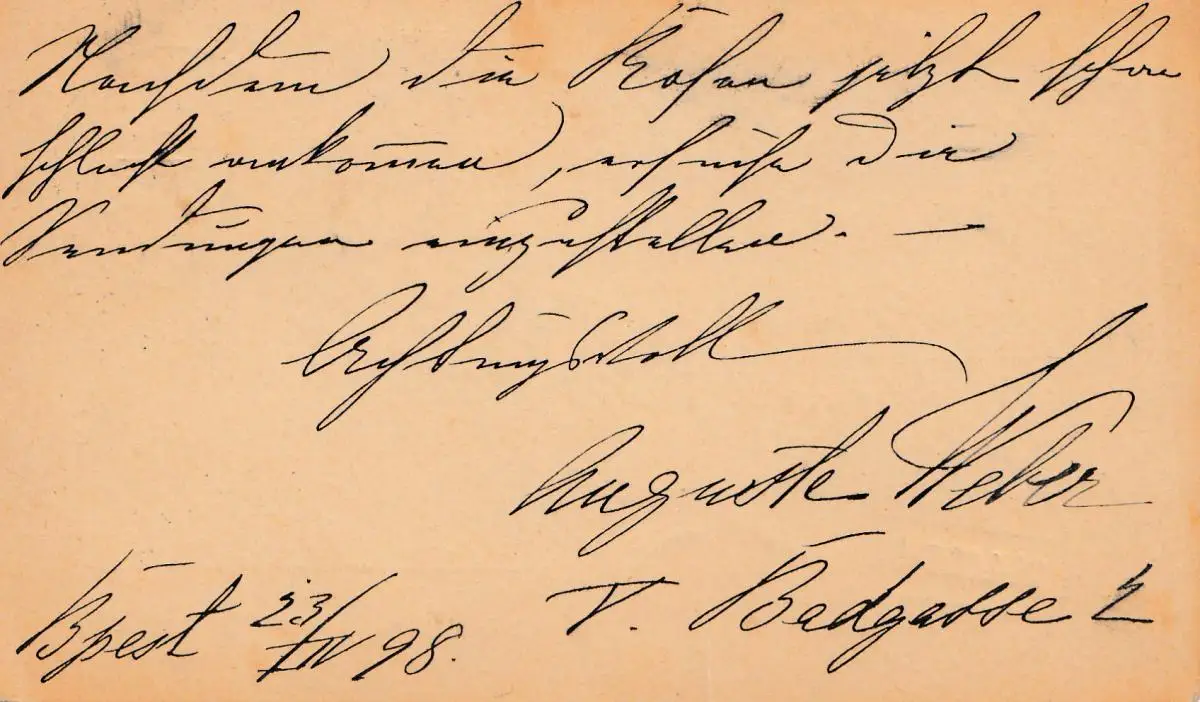 Nachdem die Rosen jetzt schon
schlecht ankom̄en, ersuche die
Sendungen einzustellen. —
Achtungsvoll
Auguste Weber
Bpest 23/IV 98. V. Badgasse 2